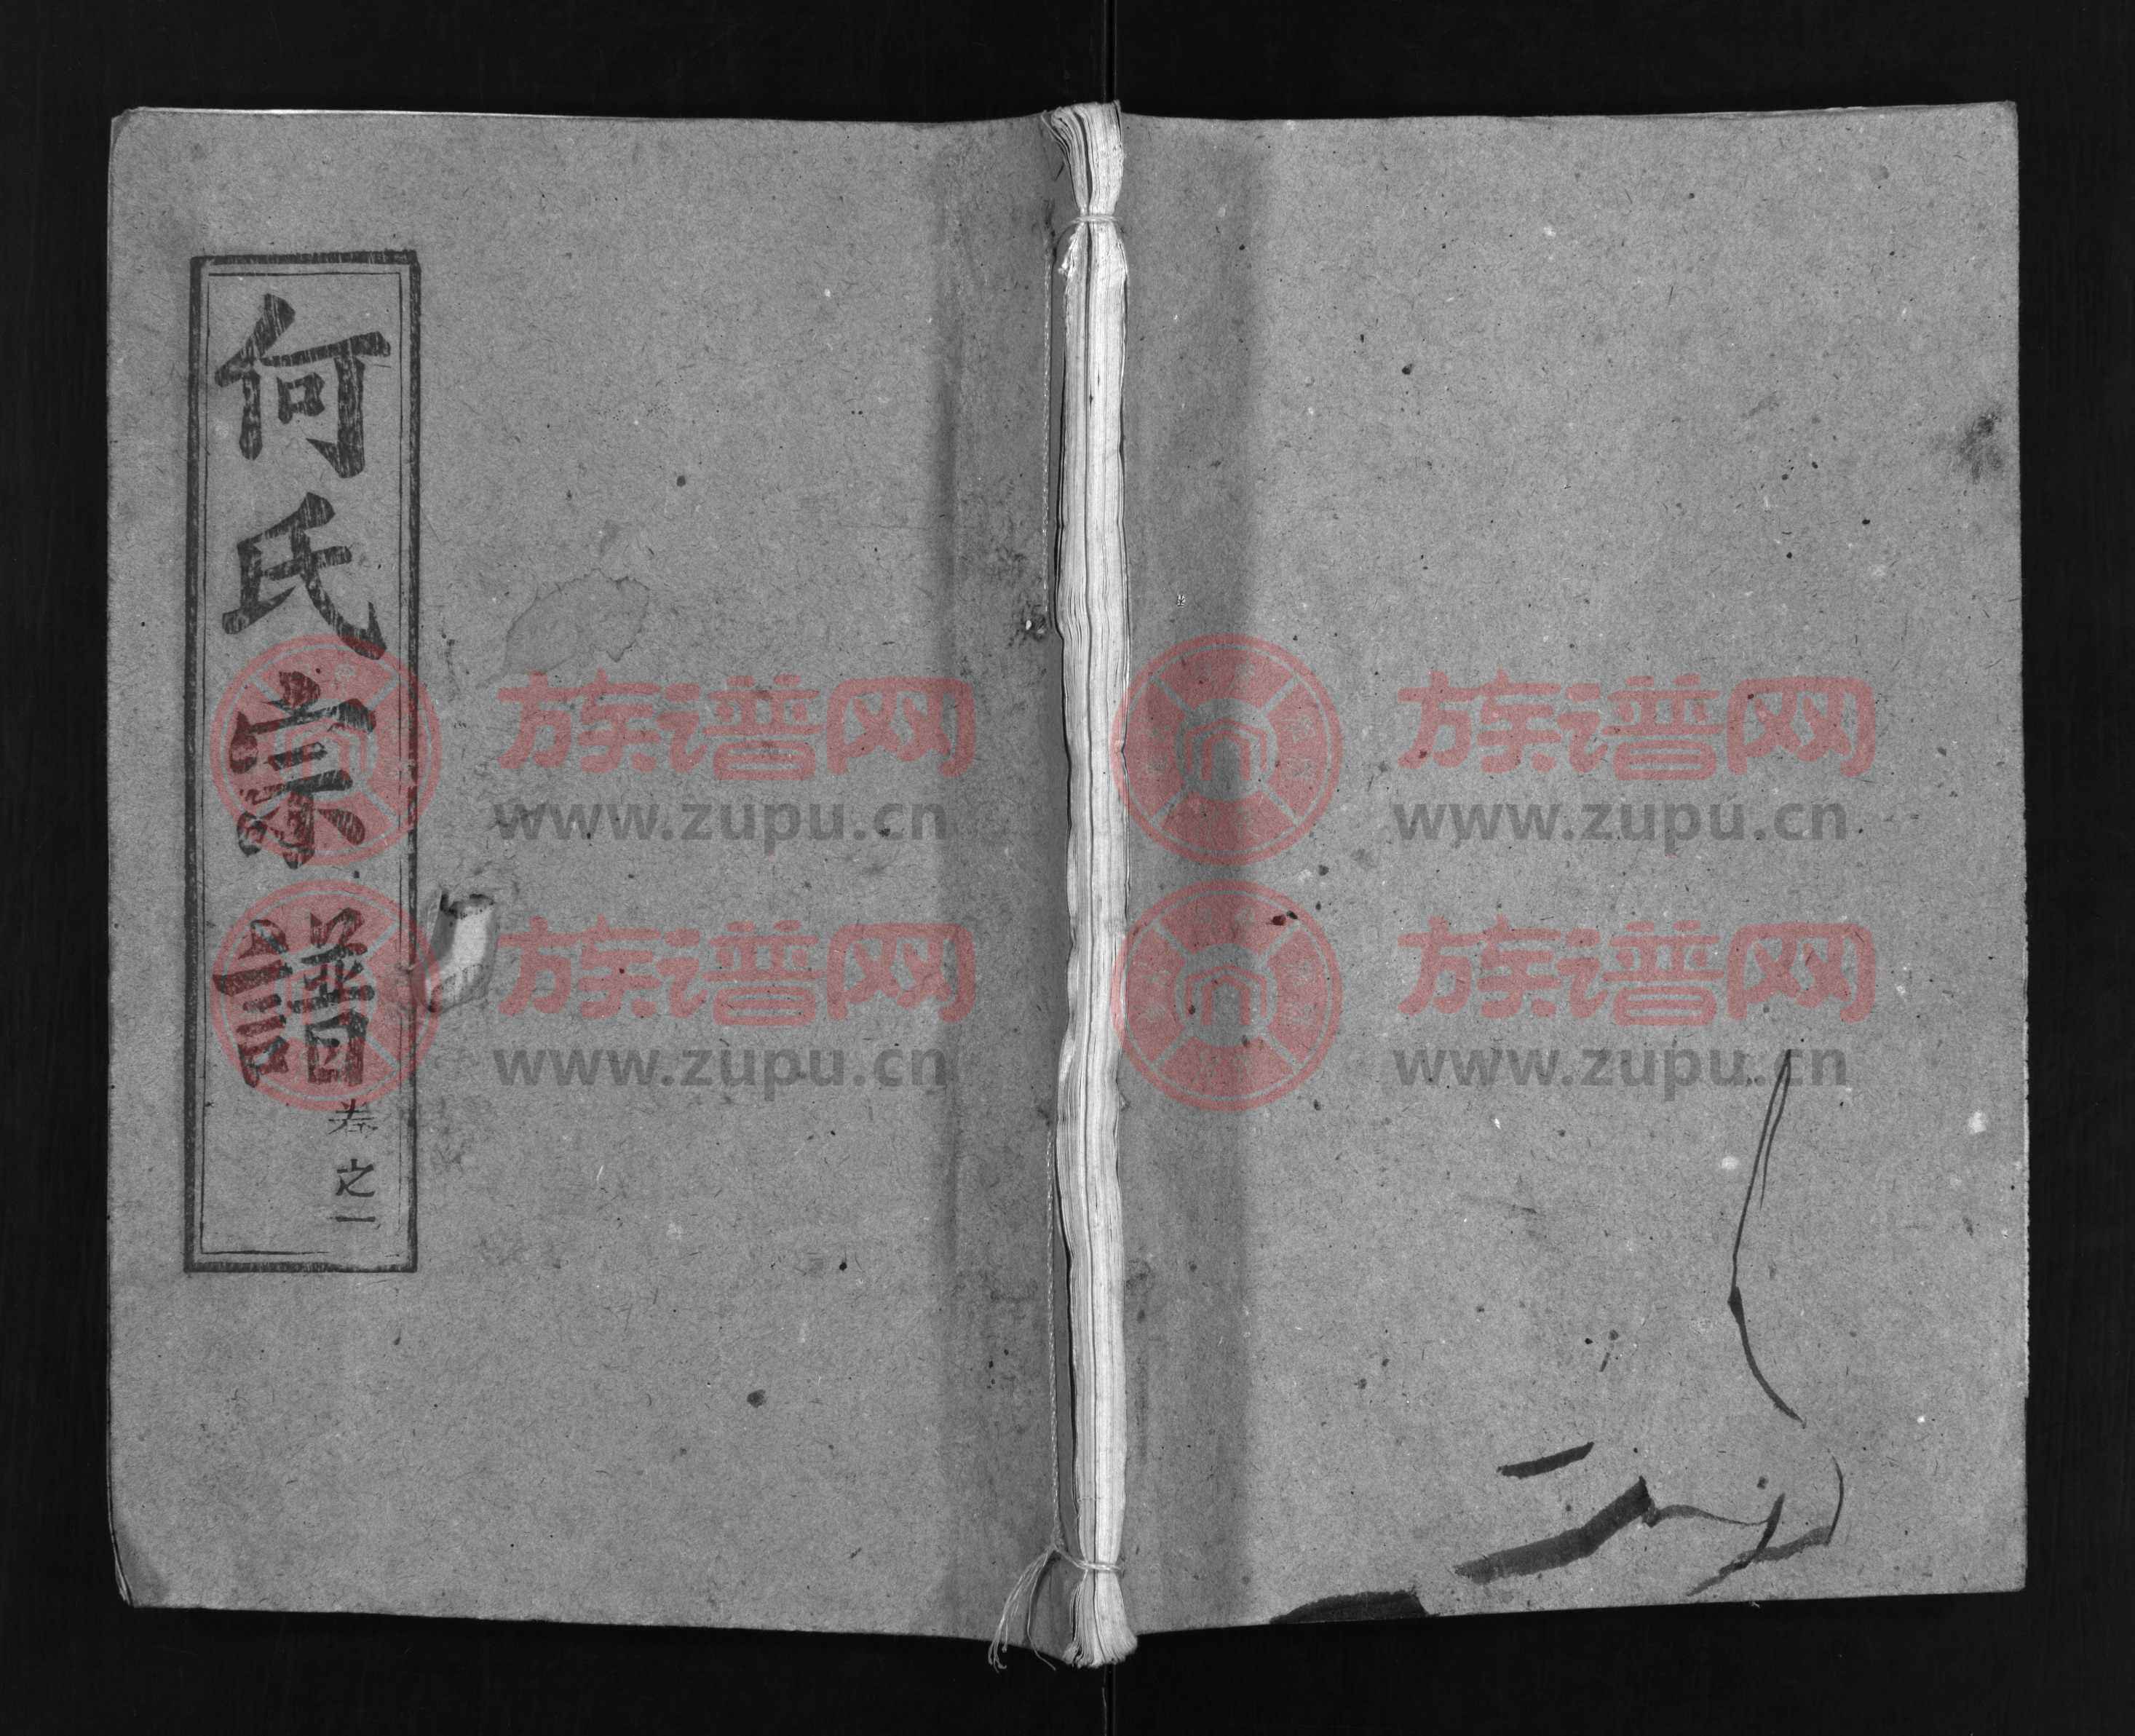 何氏宗譜
卷之一
族谱网
www.zupu.cn
族谱网
www.zupu.cn
族谱网
www.zupu.cn
族谱网
www.zupu.cn